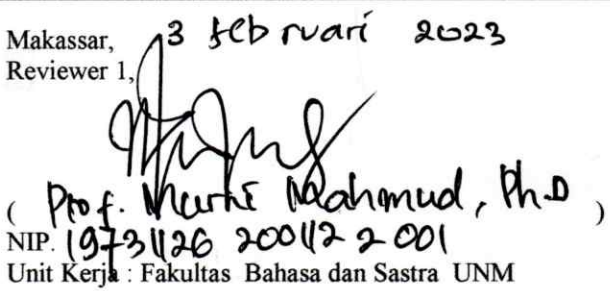 Makassar, 3 februari 2023
Reviewer 1,
( Prof. Murni Mahmud, Ph.D )
NIP. 19731126 200112 2 001
Unit Kerja : Fakultas Bahasa dan Sastra UNM